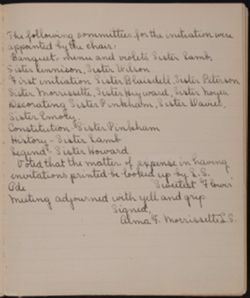 The following committees for the initiation were
appointed by the chair:
Banquet, menu and violets Sister Lamb,
Sister Kennison, Sister Wilson
First initiation Sister Blaisdell, Sister Peterson,
Sister Morrissette, Sister Hayward, Sister Noyes
Decorating Sister Pinkham, Sister
Sister Emory.
Constitution - Sister Pinkham
History - Sister Lamb
Legend - Sister Howard
Voted that the matter of expense in having
invitations printed be looked up by S.S.
Ode
Meeting adjourned with yell and grip
Signed,
Alma F. Morrissette S.S.